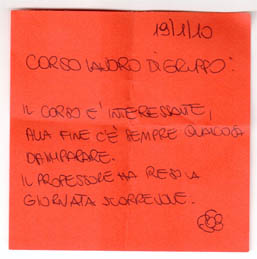 19/1/10
CORSO LAVORO "DI GRUPPO":
IL CORSO E' INTERESSANTE,
ALLA FINE C'È SEMPRE QUALCOSA
DA IMPARARE.
IL PROFESSORE HA RESO LA
GIORNATA SCORREVOLE.